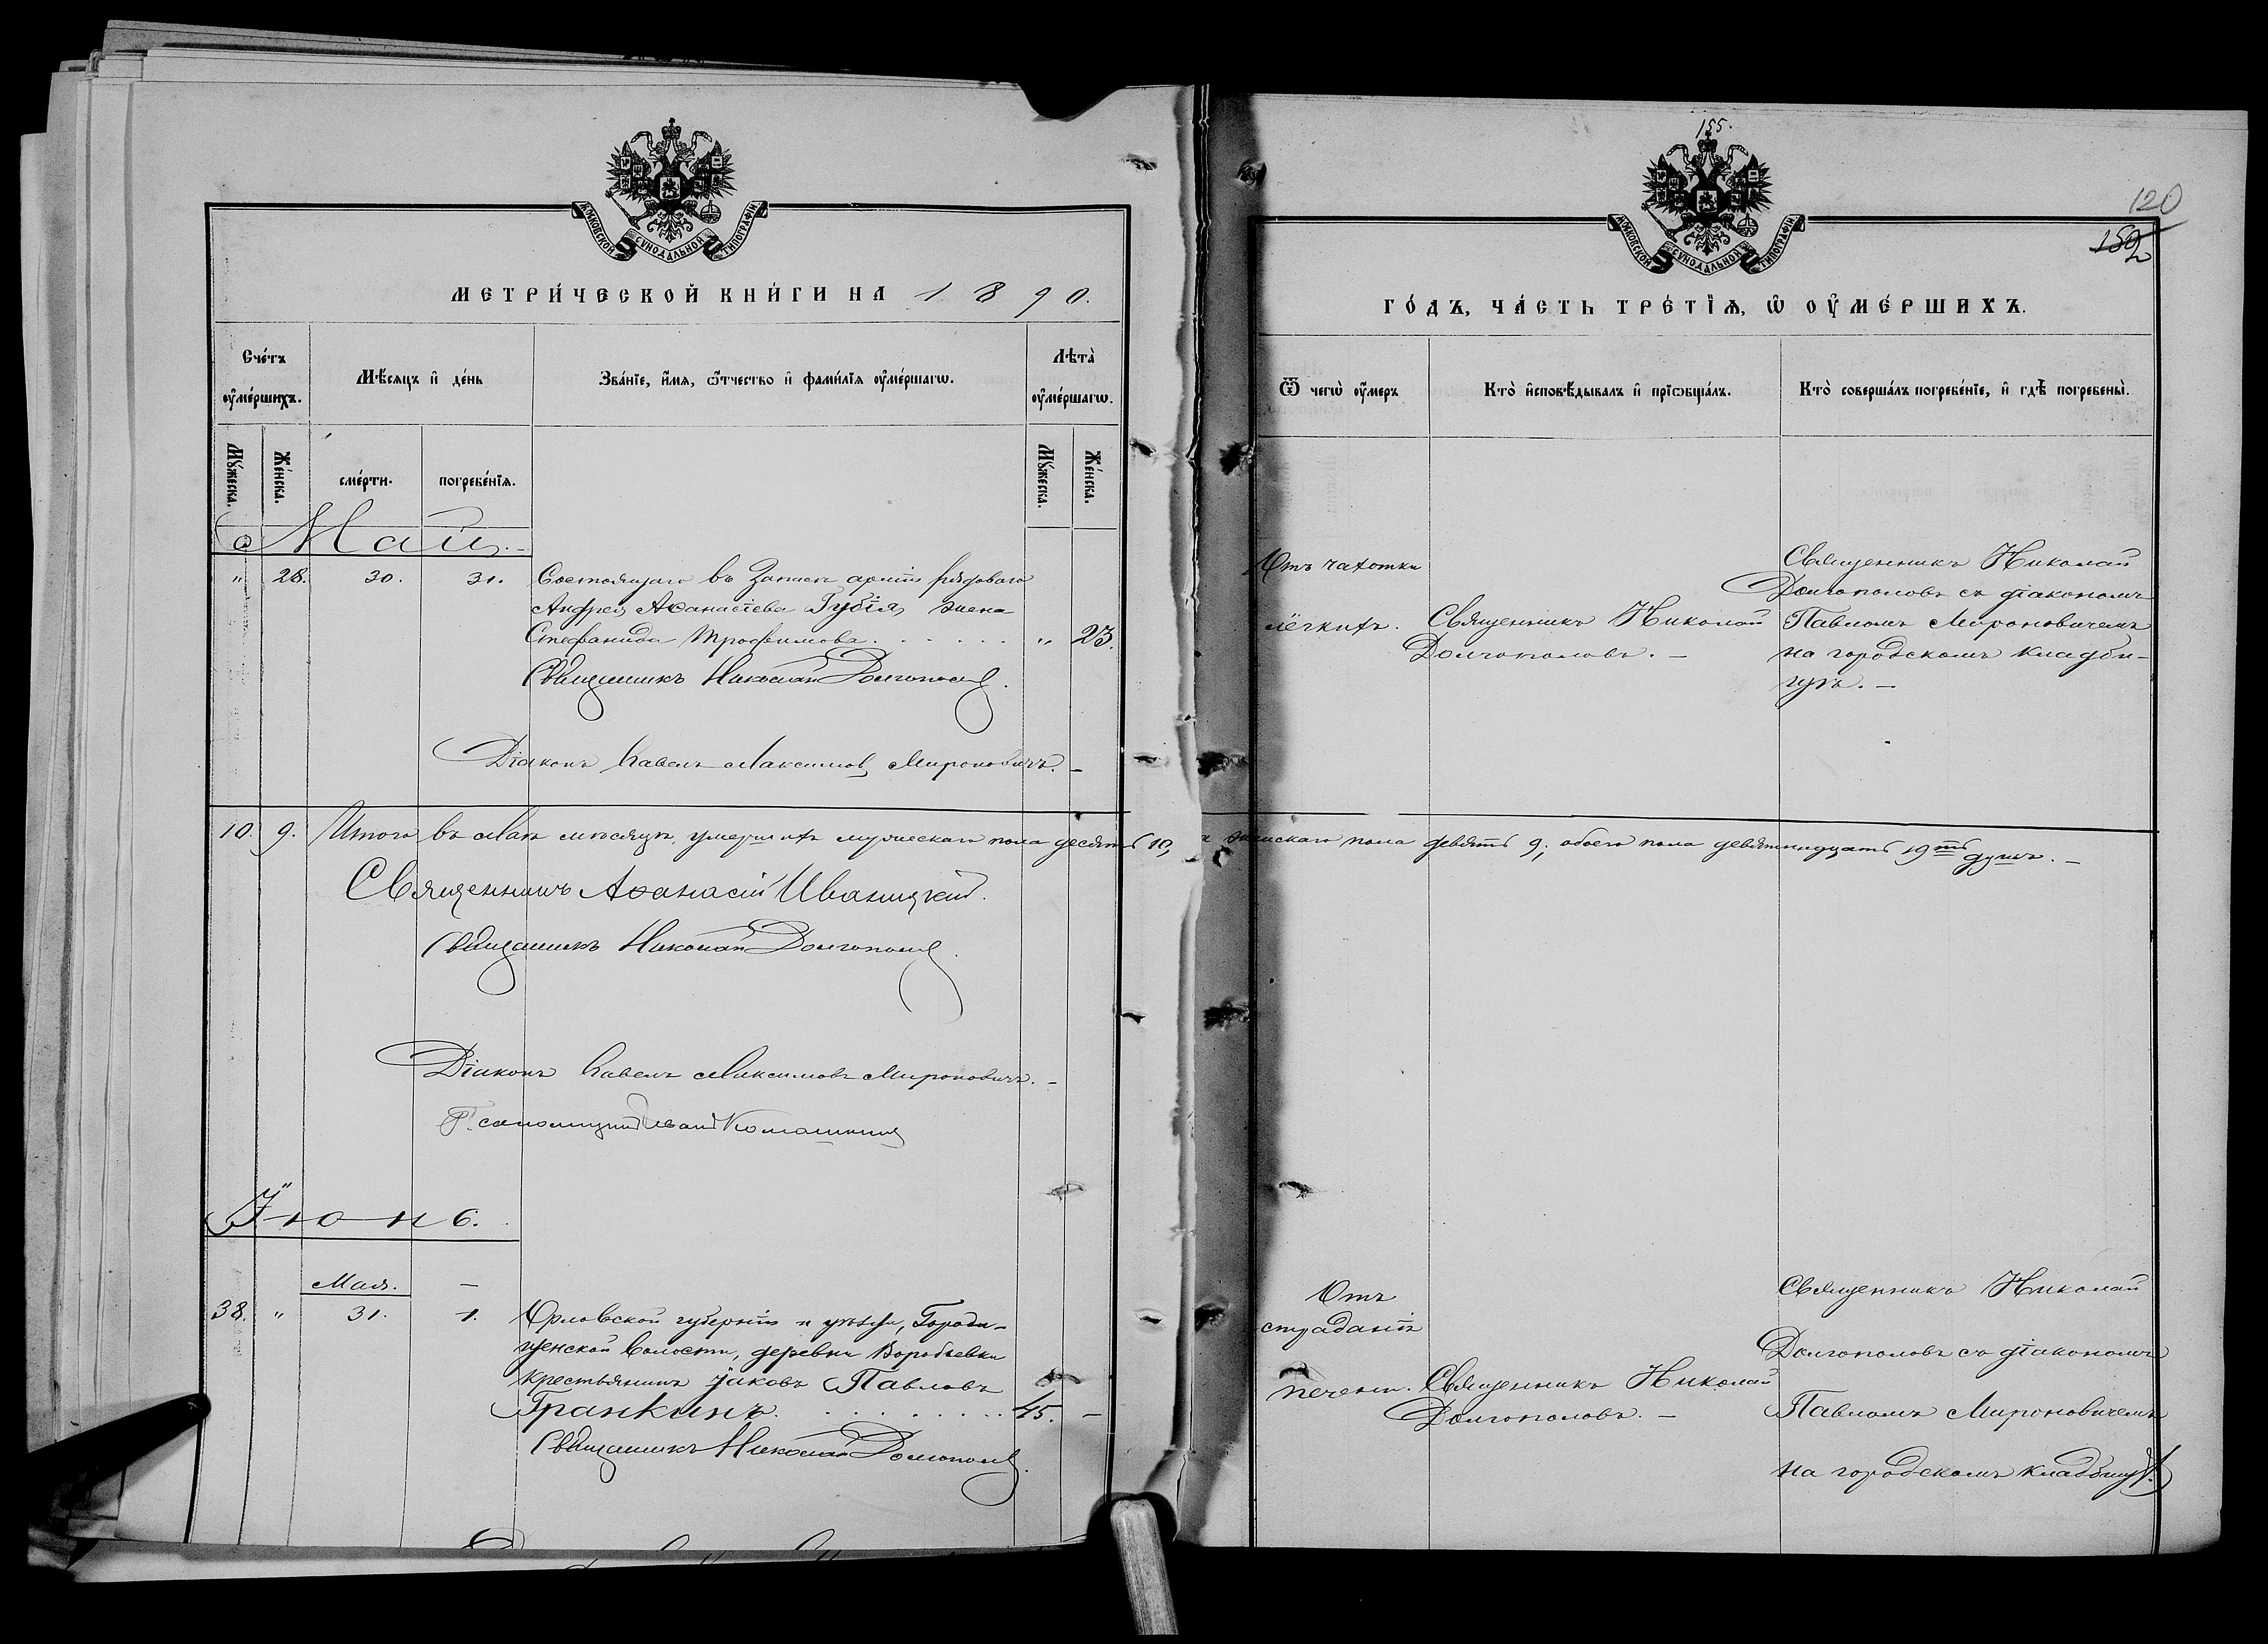 155.
120
152
МОСКОВСКОЙ СѴНОДАЛЬНОЙ ТИПОГРАФІИ
МОСКОВСКОЙ СѴНОДАЛЬНОЙ ТИПОГРАФІИ
МЕТРИ́ЧЕСКОЙ КНИ́ГИ НА 1890.
ГО́ДЪ, ЧА́СТЬ ТРЕ́ТІѦ, Ѡ҆ ОУ҆МЕ́РШИХЪ.
Сче́тъ оу҆ме́ршихъ.
Мѣ́сяцъ и҆ де́нь
Зва́нїе, и҆́мя, ѻ҆́тчество и҆ фами́лїя оу҆ме́ршагѡ.
Лѣта̀ оу҆ме́ршагѡ.
Ѿ чегѡ̀ оу҆́меръ
Кто̀ и҆сповѣ́дывалъ и҆ прїѡбща́лъ.
Кто̀ соверша́лъ погребе́нїе, и҆ гдѣ̀ погребены̀.
Мꙋ́жеска.
Же́нска.
сме́рти.
погребе́нїя.
Мꙋ́жеска.
Же́нска.
Май.
" 28. 30. 31. Состоящаго въ Запасѣ арміи рядоваго
Андрея Аѳанасіева Губія, жена
Стефанида Трофимова. " 23.
Священникъ Николай Долгополов.
Діаконъ Павелъ Максимов Мироновичъ.
Отъ чахотки
лёгкихъ.
Священникъ Николай
Долгополовъ. —
Священникъ Николай
Долгополовъ съ діакономъ
Павломъ Мироновичемъ
на городскомъ кладби-
щѣ. —
10. 9. Итого въ Маѣ мѣсяцѣ умершихъ мужескаго пола десять 10, а женскаго пола девять 9; обоего пола девятнадцать 19ть душъ. —
Священникъ Аѳанасій Иваницкій.
Священникъ Николай Долгополов.
Діаконъ Павелъ Максимовъ Мироновичъ. —
Іюнь.
Мая. —
38. " 31. 1. Орловской губерніи и уѣзда, Городи-
щенской волости, деревни Воробьевки
крестьянинъ Іаковъ Павловъ
Гранкинъ. 45. —
Священникъ Николай Долгополов.
Отъ
страданія
печени.
Священникъ Николай
Долгополовъ. —
Священникъ Николай
Долгополовъ съ діакономъ
Павломъ Мироновичемъ
на городскомъ кладбищѣ.